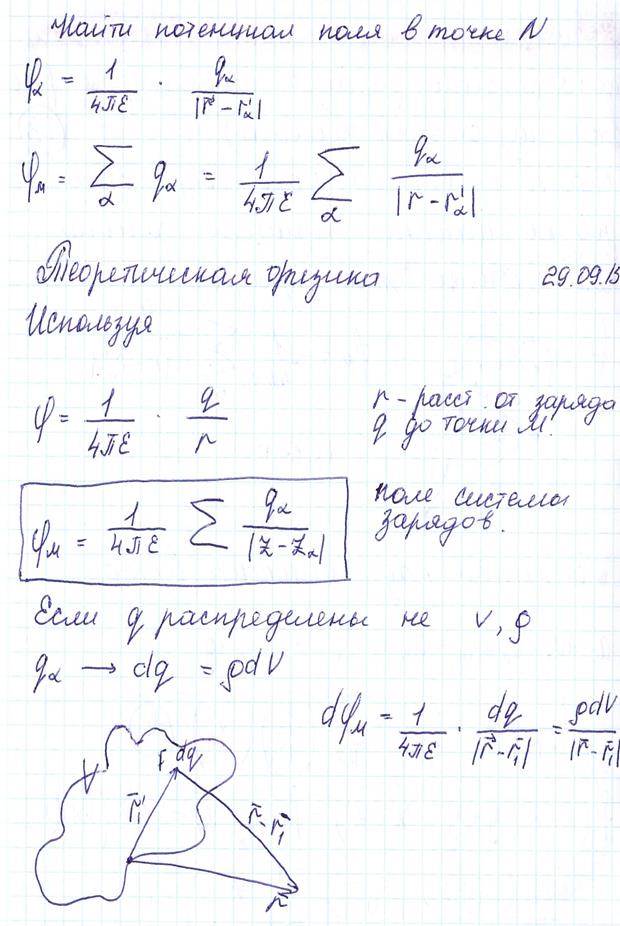 Найти потенциал поля в точке N
φ_α = 1/4πε · q_α/|r⃗ - r'_α|
φ_м = ∑_α q_α = 1/4πε ∑_α q_α/|r - r'_α|
Теоретическая физика 29.09.13
Используя
φ = 1/4πε · q/r
r - расст. от заряда
q до точки М.
φ_м = 1/4πε ∑ q_α/|z - z_α|
поле системы
зарядов.
Если q распределены не v, ρ
q_α → dq = ρdV
dφ_м = 1/4πε · dq/|r⃗ - r̄₁| = ρdV/|r̄ - r̄₁|
V
dq
r̄₁'
r̄ - r̄₁
r̄